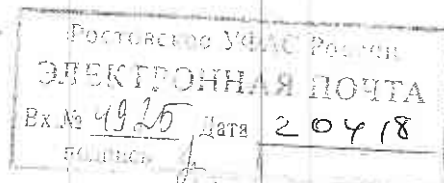 Ростовское УФАС России
ЭЛЕКТРОННАЯ ПОЧТА
Вх.№ 4925 Дата 20 4 18
подпись